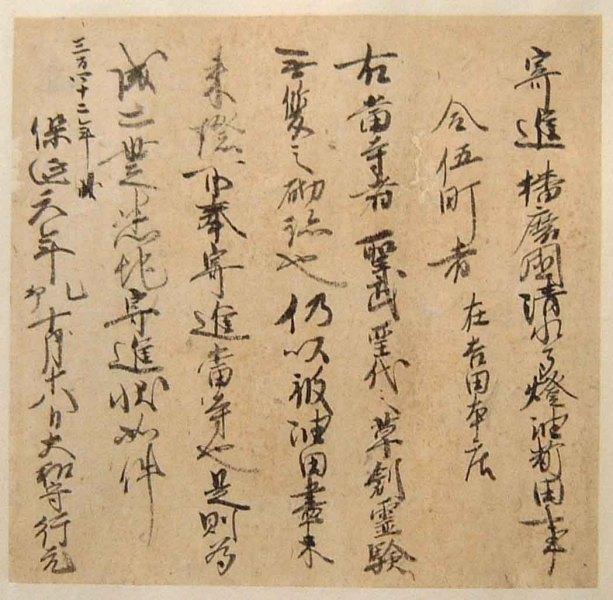 寄進 播磨國清水寺燈油料田事
合伍町者 在吉田本庄
右當寺者聖武聖代之草創靈驗
無雙之砌跡也仍以彼油田盡未
来際所奉寄進當寺也是則為
成二世悉地寄進状如件
四十二年
保延元年乙卯月十八日大和守行元